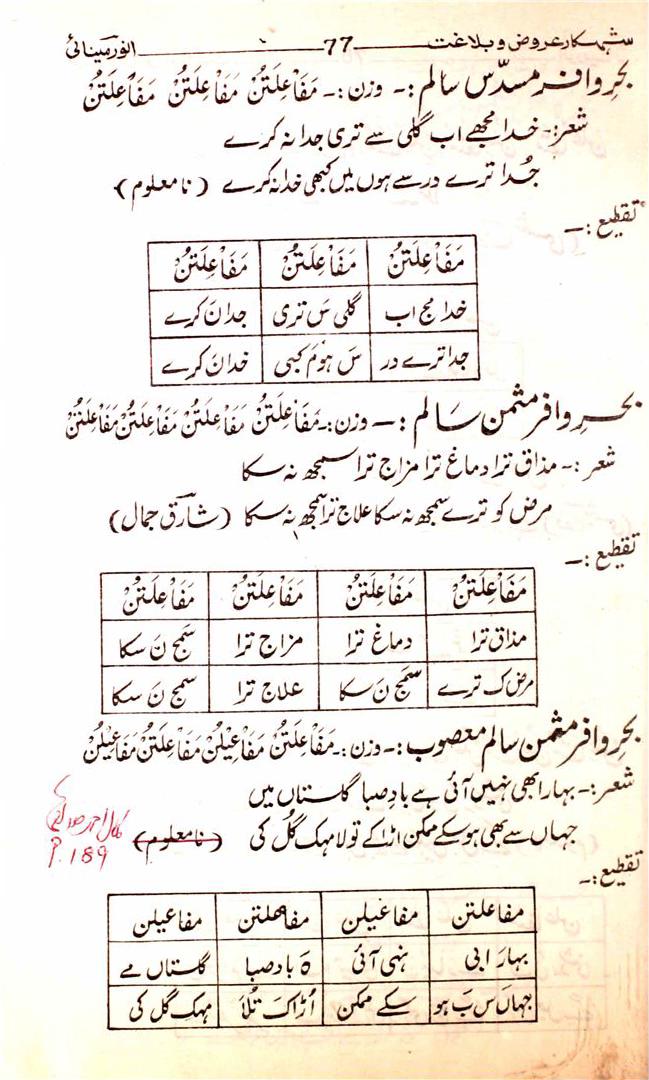 شہکار عروض و بلاغت 77 انور مینائی
بحرِ وافر مسدّس سالم :۔ وزن :۔ مَفَاْعِلَتُنْ مَفَاْعِلَتُنْ مَفَاْعِلَتُنْ
شعر :۔ خدا مجھے اب گلی سے تری جدا نہ کرے
جُدا ترے در سے ہوں میں کبھی خدا نہ کرے (نا معلوم)
تقطیع :۔
مَفَاْعِلَتُنْ مَفَاْعِلَتُنْ مَفَاْعِلَتُنْ
خدا مج اب گلی سَ تری جدا نَ کرے
جدا ترے در سَ ہو مَ کبی خدا نَ کرے
بحرِ وافر مثمن سَالم :۔ وزن :۔ مَفَاْعِلَتُنْ مَفَاْعِلَتُنْ مَفَاْعِلَتُنْ مَفَاْعِلَتُنْ
شعر :۔ مذاق ترا دماغ ترا مزاج ترا سمجھ نہ سکا
مرض کو ترے سمجھ نہ سکا علاج ترا سمجھ نہ سکا (شارق جمال)
تقطیع :۔
مَفَاْعِلَتُنْ مَفَاْعِلَتُنْ مَفَاْعِلَتُنْ مَفَاْعِلَتُنْ
مذاق ترا دماغ ترا مزاج ترا سَمج نَ سکا
مرض ک ترے سَمج نَ سکا علاج ترا سمج نَ سکا
بحرِ وافر مثمن سالم معصوب :۔ وزن :۔ مَفَاْعِلَتُنْ مَفَاْعِیْلُنْ مَفَاْعِلَتُنْ مَفَاْعِیْلُنْ
شعر :۔ بہار ابھی نہیں آئی ہے بادِ صبا گلستاں میں
جہاں سے بھی ہو سکے ممکن اڑا کے تو لا مہک گُل کی (نا معلوم)
P. 189
تقطیع :۔
مفاعلتن مفاعیلن مفاعلتن مفاعیلن
بہارَ ابی نہی آئی ہَ باد صبا گلستاں مے
جہاں سَ بَ ہو سکے ممکن اُڑا کَ تُلاَ مہک گل کی